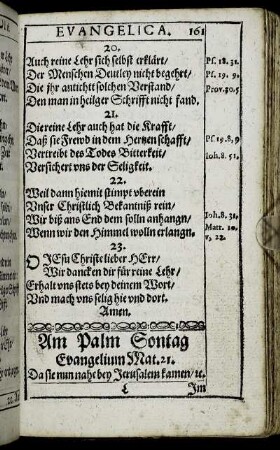 EVANGELICA. 161
20.
Auch reine Lehr sich selbst erklärt/ Ps. 18. 31.
Der Menschen Deutley nicht begehrt/ Ps. 19. 9.
Die jhr antichtt solchen Verstand/ Prov. 30. 5
Den man in heilger Schrifft nicht fand.
21.
Die reine Lehr auch hat die Krafft/
Daß sie Frewd in dem Hertzen schafft/ Ps. 19. 8, 9
Vertreibt des Todes Bitterkeit/ Ioh. 8. 51.
Versichert vns der Seligkeit.
22.
Weil dann hiemit stimpt vberein
Vnser Christlich Bekantniß rein/
Wir biß ans End dem solln anhangn/ Ioh. 8. 31,
Wenn wir den Himmel wolln erlangn. Matt. 10.
v. 22.
23.
O JEsu Christe lieber HErr/
Wir dancken dir für reine Lehr/
Erhalt vns stets bey deinem Wort/
Vnd mach vns selig hie vnd dort.
Amen.
Am Palm Sontag
Evangelium Mat. 21.
Da sie nun nahe bey Jerusalem kamen/ ꝛc.
L Im